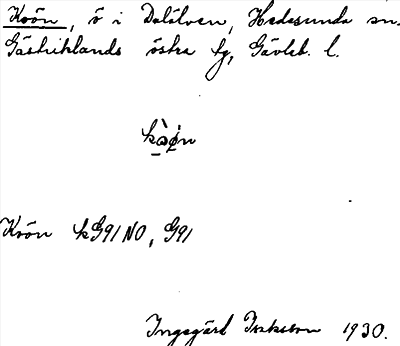 Koön, ö i Dalälven, Hedesunda sn.
Gästriklands östra tg, Gävleb. l.
Koön kG91 NO, G91
Ingegärd Isaksson 1930.